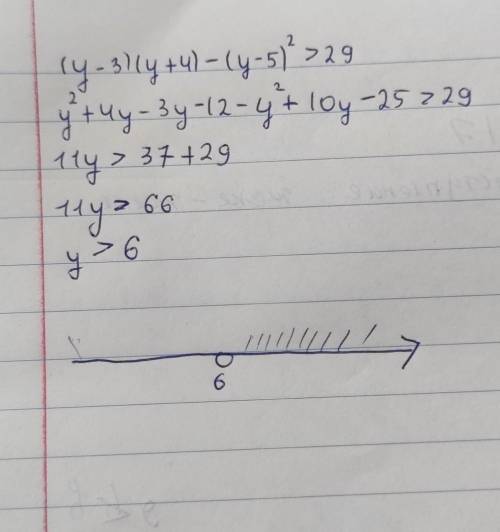 (y-3)(y+4)-(y-5)²>29
y²+4y-3y-12-y²+10y-25>29
11y>37+29
11y>66
y>6
6